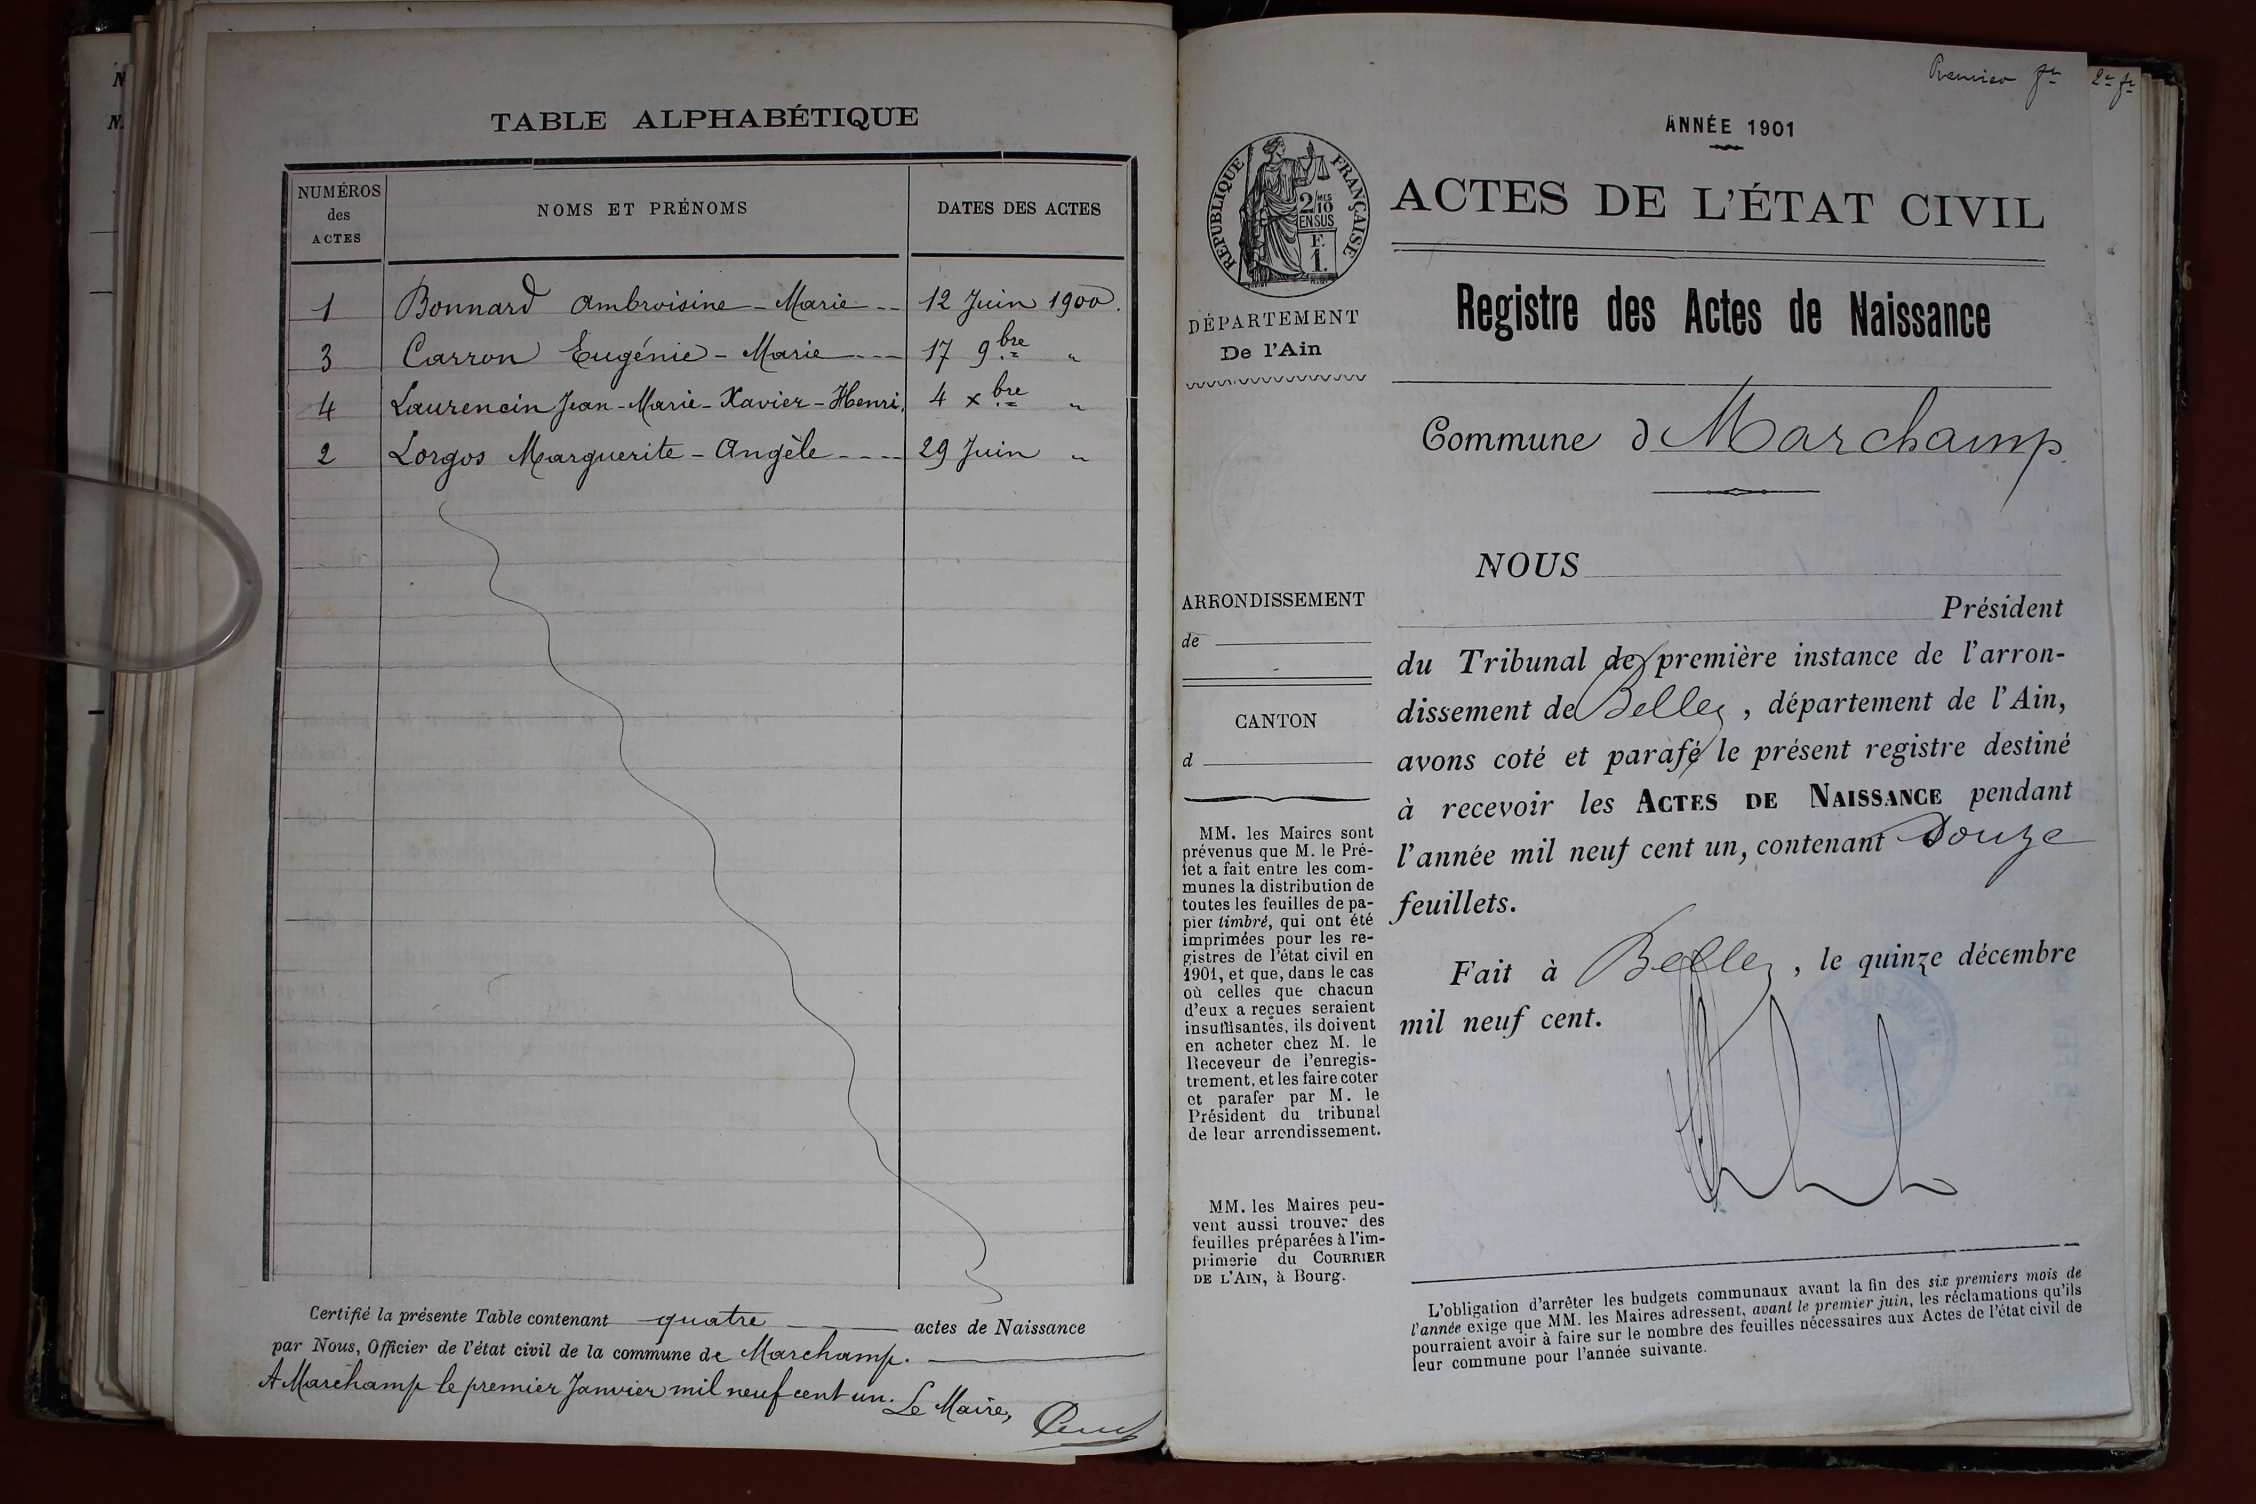 TABLE ALPHABÉTIQUE
NUMÉROS des ACTES
NOMS ET PRÉNOMS
DATES DES ACTES
1 Bonnard Ambroisine - Marie 12 Juin 1900.
3 Carron Eugénie - Marie 17 9bre "
4 Laurencin Jean - Marie - Xavier - Henri. 4 xbre "
2 Lorgos Marguerite - Angèle 29 Juin "
Certifié la présente Table contenant quatre actes de Naissance
par Nous, Officier de l'état civil de la commune de Marchamp.
A Marchamp le premier Janvier mil neuf cent un. Le Maire,
Premier fet
2e fet
ANNÉE 1901
RÉPUBLIQUE FRANÇAISE
2/10 MES
EN SUS
F.
1.
ACTES DE L'ÉTAT CIVIL
DÉPARTEMENT
De l'Ain
Registre des Actes de Naissance
Commune d Marchamp
NOUS
Président
du Tribunal de première instance de l'arron-
dissement de Belley, département de l'Ain,
avons coté et parafé le présent registre destiné
à recevoir les ACTES DE NAISSANCE pendant
l'année mil neuf cent un, contenant Douze
feuillets.
Fait à Belley, le quinze décembre
mil neuf cent.
ARRONDISSEMENT
de
CANTON
d
MM. les Maires sont
prévenus que M. le Pré-
fet a fait entre les com-
munes la distribution de
toutes les feuilles de pa-
pier timbré, qui ont été
imprimées pour les re-
gistres de l'état civil en
1901, et que, dans le cas
où celles que chacun
d'eux a reçues seraient
insuffisantes, ils doivent
en acheter chez M. le
Receveur de l'enregis-
trement, et les faire coter
et parafer par M. le
Président du tribunal
de leur arrondissement.
MM. les Maires peu-
vent aussi trouver des
feuilles préparées à l'im-
primerie du COURRIER
DE L'AIN, à Bourg.
L'obligation d'arrêter les budgets communaux avant la fin des six premiers mois de
l'année exige que MM. les Maires adressent, avant le premier juin, les réclamations qu'ils
pourraient avoir à faire sur le nombre des feuilles nécessaires aux Actes de l'état civil de
leur commune pour l'année suivante.